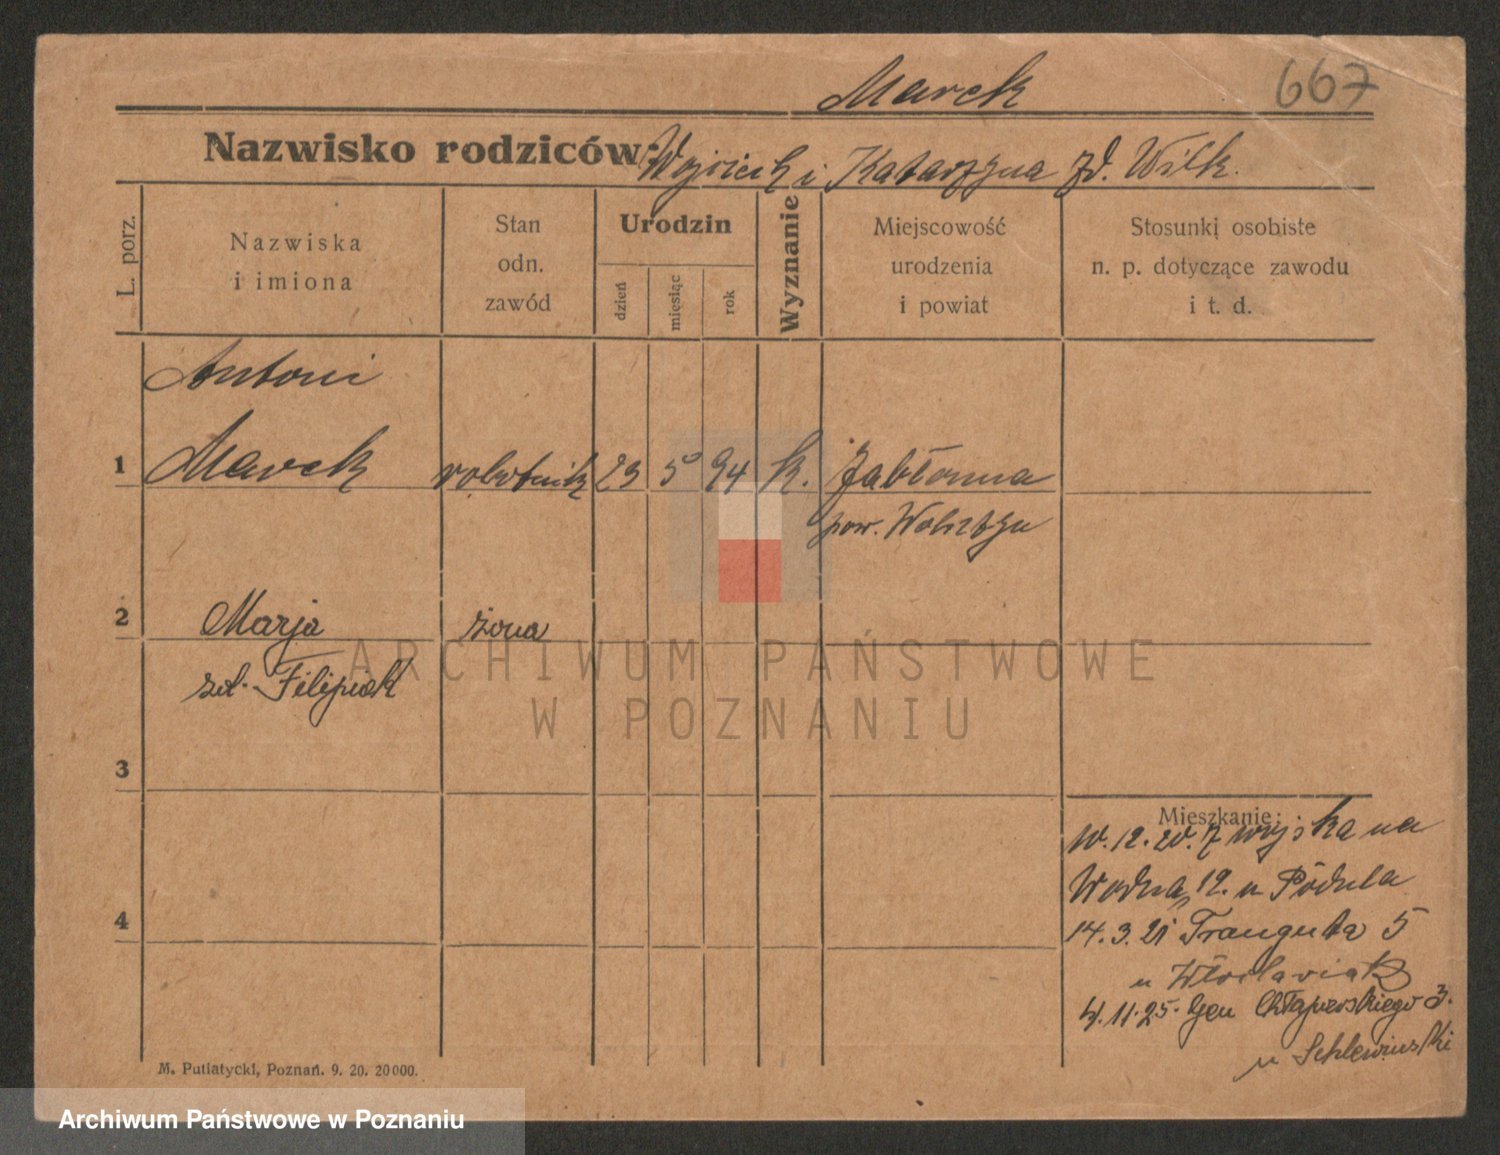 Marek
667
Nazwisko rodziców: Wojciech i Katarzyna zd. Wilk.
L. porz.
Nazwiska
i imiona
Stan
odn.
zawód
Urodzin
dzień
miesiąc
rok
Wyznanie
Miejscowość
urodzenia
i powiat
Stosunki osobiste
n. p. dotyczące zawodu
i t. d.
Antoni
1 Marek robotnik 23 5 94 k. Jabłonna
pow. Wolsztyn
2 Marja żona
zd. Filipiak
3
Mieszkanie:
12. 20. z wojska na
Wodna 12. u
4
14. 3. 21 Trauguta 5
u
4. 11. 25. Gen Chłapowskiego 3.
u
M. Putiatycki, Poznań. 9. 20. 20000.
ARCHIWUM PAŃSTWOWE
W POZNANIU
Archiwum Państwowe w Poznaniu